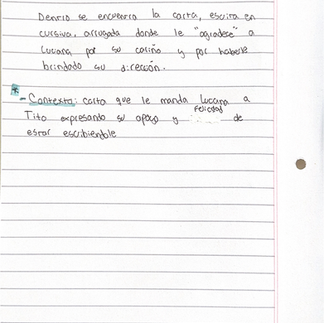 Dentro se encuentra la carta, escrita en
cursiva, arrugada donde le "agradese" a
Luciana por su cariño y por haberle
brindado su dirección.
- Contexto: carta que le manda Luciana a
Tito expresando su apoyo y felicidad de
estar escribiendole